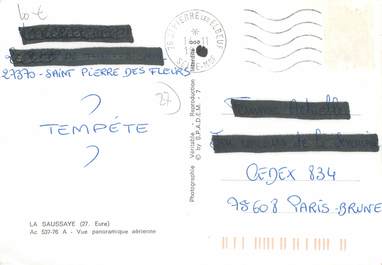 10€
27370-SAINT PIERRE DES FLEURS
27
TEMPÉTE
LA SAUSSAYE (27. Eure)
Ac 527-76 A - Vue panoramique aérienne
Photographie Véritable - Reproduction Interdite
© by S.P.A.D.E.M.
CEDEX 834
75608 PARIS-BRUNE